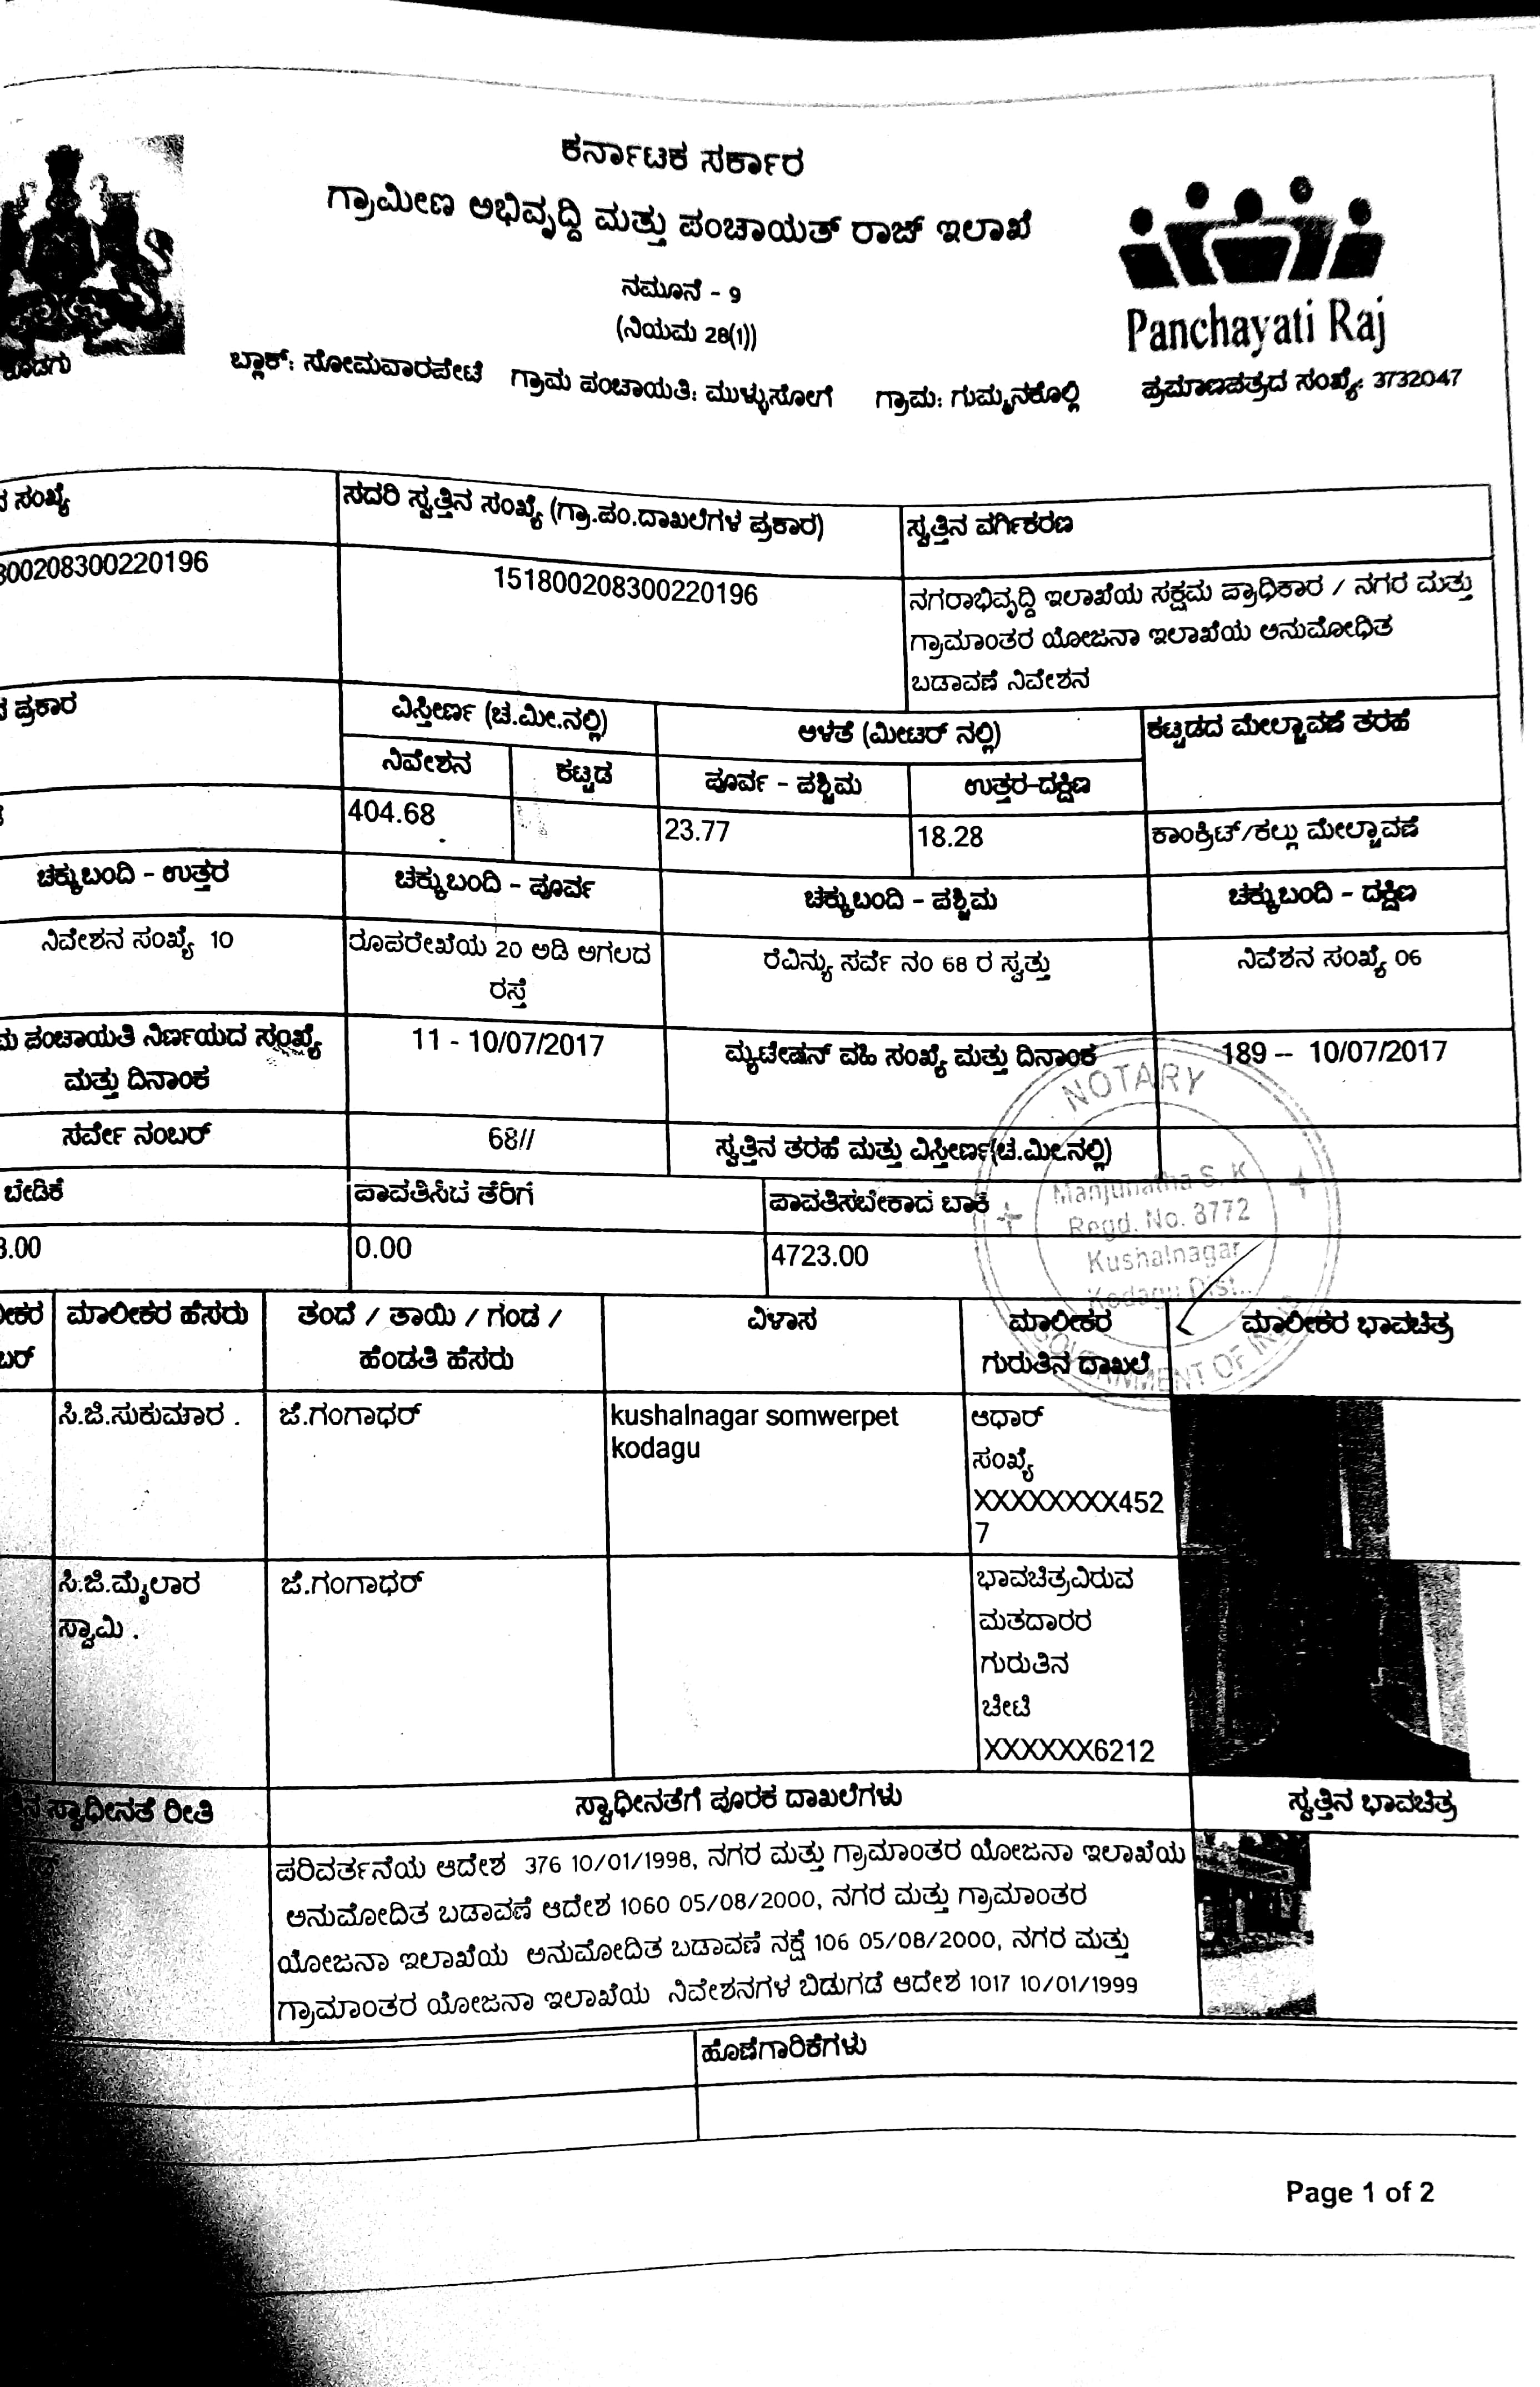 ಕರ್ನಾಟಕ ಸರ್ಕಾರ
ಗ್ರಾಮೀಣ ಅಭಿವೃದ್ಧಿ ಮತ್ತು ಪಂಚಾಯತ್ ರಾಜ್ ಇಲಾಖೆ
ನಮೂನೆ - 9
(ನಿಯಮ 28(1))
Panchayati Raj
ಬ್ಲಾಕ್: ಸೋಮವಾರಪೇಟೆ ಗ್ರಾಮ ಪಂಚಾಯತಿ: ಮುಳ್ಳುಸೋಗೆ ಗ್ರಾಮ: ಗುಮ್ಮನಕೊಲ್ಲಿ ಪ್ರಮಾಣಪತ್ರದ ಸಂಖ್ಯೆ: 3732047
ಸಂಖ್ಯೆ ಸದರಿ ಸ್ವತ್ತಿನ ಸಂಖ್ಯೆ (ಗ್ರಾ.ಪಂ.ದಾಖಲೆಗಳ ಪ್ರಕಾರ) ಸ್ವತ್ತಿನ ವರ್ಗಿಕರಣ
00208300220196 151800208300220196 ನಗರಾಭಿವೃದ್ಧಿ ಇಲಾಖೆಯ ಸಕ್ಷಮ ಪ್ರಾಧಿಕಾರ / ನಗರ ಮತ್ತು
ಗ್ರಾಮಾಂತರ ಯೋಜನಾ ಇಲಾಖೆಯ ಅನುಮೋಧಿತ
ಬಡಾವಣೆ ನಿವೇಶನ
ಪ್ರಕಾರ ವಿಸ್ತೀರ್ಣ (ಚ.ಮೀ.ನಲ್ಲಿ) ಅಳತೆ (ಮೀಟರ್ ನಲ್ಲಿ) ಕಟ್ಟಡದ ಮೇಲ್ಚಾವಣೆ ತರಹೆ
ನಿವೇಶನ ಕಟ್ಟಡ ಪೂರ್ವ - ಪಶ್ಚಿಮ ಉತ್ತರ-ದಕ್ಷಿಣ
404.68 23.77 18.28 ಕಾಂಕ್ರಿಟ್/ಕಲ್ಲು ಮೇಲ್ಚಾವಣೆ
ಚಕ್ಕುಬಂದಿ - ಉತ್ತರ ಚಕ್ಕುಬಂದಿ - ಪೂರ್ವ ಚಕ್ಕುಬಂದಿ - ಪಶ್ಚಿಮ ಚಕ್ಕುಬಂದಿ - ದಕ್ಷಿಣ
ನಿವೇಶನ ಸಂಖ್ಯೆ 10 ರೂಪರೇಖೆಯ 20 ಅಡಿ ಅಗಲದ ರೆವಿನ್ಯು ಸರ್ವೆ ನಂ 68 ರ ಸ್ವತ್ತು ನಿವೆಶನ ಸಂಖ್ಯೆ 06
ರಸ್ತೆ
ಪಂಚಾಯತಿ ನಿರ್ಣಯದ ಸಂಖ್ಯೆ 11 - 10/07/2017 ಮ್ಯುಟೇಷನ್ ವಹಿ ಸಂಖ್ಯೆ ಮತ್ತು ದಿನಾಂಕ 189 -- 10/07/2017
ಮತ್ತು ದಿನಾಂಕ
ಸರ್ವೇ ನಂಬರ್ 68// ಸ್ವತ್ತಿನ ತರಹೆ ಮತ್ತು ವಿಸ್ತೀರ್ಣ(ಚ.ಮೀ.ನಲ್ಲಿ)
ಬೇಡಿಕೆ ಪಾವತಿಸಿದ ತೆರಿಗೆ ಪಾವತಿಸಬೇಕಾದ ಬಾಕಿ
3.00 0.00 4723.00
NOTARY
Manjunatha S. K
Regd. No. 3772
Kushalnagar
Kodagu Dist.
GOVERNMENT OF INDIA
ಮಾಲೀಕರ ಹೆಸರು ತಂದೆ / ತಾಯಿ / ಗಂಡ / ವಿಳಾಸ ಮಾಲೀಕರ ಮಾಲೀಕರ ಭಾವಚಿತ್ರ
ಹೆಂಡತಿ ಹೆಸರು ಗುರುತಿನ ದಾಖಲೆ
ಸಿ.ಜಿ.ಸುಕುಮಾರ . ಜೆ.ಗಂಗಾಧರ್ kushalnagar somwerpet ಆಧಾರ್
kodagu ಸಂಖ್ಯೆ
XXXXXXXX452
7
ಸಿ.ಜಿ.ಮೈಲಾರ ಜೆ.ಗಂಗಾಧರ್ ಭಾವಚಿತ್ರವಿರುವ
ಸ್ವಾಮಿ . ಮತದಾರರ
ಗುರುತಿನ
ಚೀಟಿ
XXXXXX6212
ಸ್ವಾಧೀನತೆ ರೀತಿ ಸ್ವಾಧೀನತೆಗೆ ಪೂರಕ ದಾಖಲೆಗಳು ಸ್ವತ್ತಿನ ಭಾವಚಿತ್ರ
ಪರಿವರ್ತನೆಯ ಆದೇಶ 376 10/01/1998, ನಗರ ಮತ್ತು ಗ್ರಾಮಾಂತರ ಯೋಜನಾ ಇಲಾಖೆಯ
ಅನುಮೋದಿತ ಬಡಾವಣೆ ಆದೇಶ 1060 05/08/2000, ನಗರ ಮತ್ತು ಗ್ರಾಮಾಂತರ
ಯೋಜನಾ ಇಲಾಖೆಯ ಅನುಮೋದಿತ ಬಡಾವಣೆ ನಕ್ಷೆ 106 05/08/2000, ನಗರ ಮತ್ತು
ಗ್ರಾಮಾಂತರ ಯೋಜನಾ ಇಲಾಖೆಯ ನಿವೇಶನಗಳ ಬಿಡುಗಡೆ ಆದೇಶ 1017 10/01/1999
ಹೊಣೆಗಾರಿಕೆಗಳು
Page 1 of 2